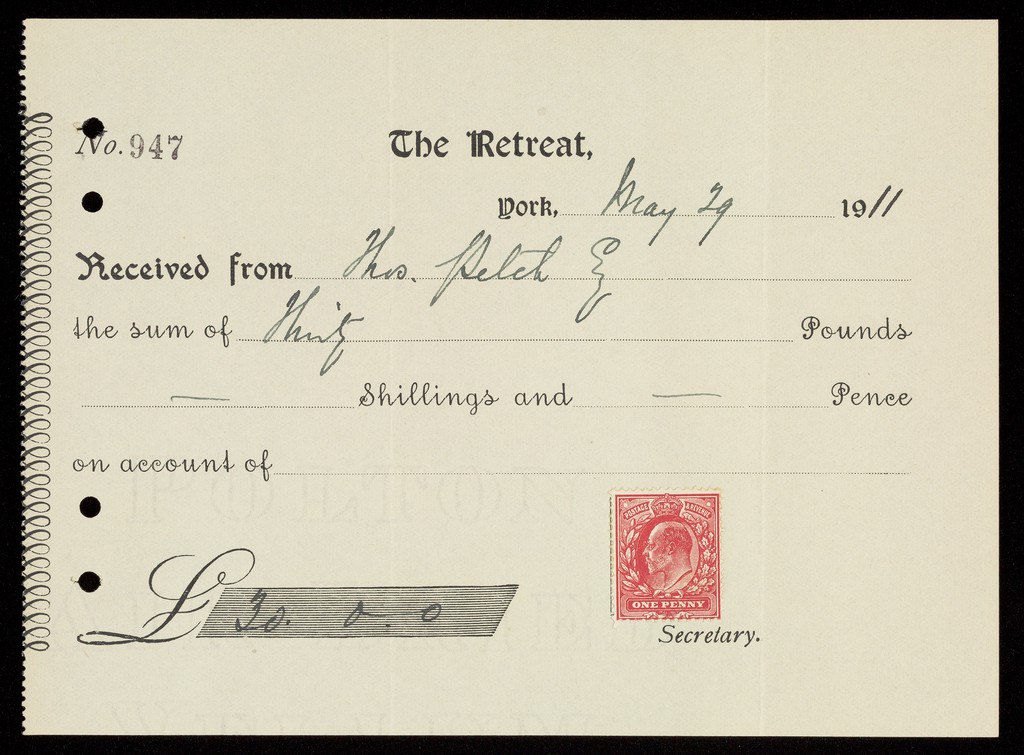 No. 947
The Retreat,
York, May 29 1911
Received from Thos. Petch Esq
the sum of Thirty Pounds
— Shillings and — Pence
on account of
£ 30. 0. 0
POSTAGE & REVENUE
ONE PENNY
Secretary.